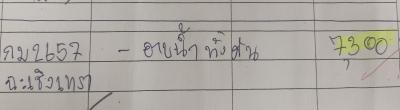 กม2657 - อาบน้ำ ทั้งคัน 7,300
ฉะเชิงเทรา